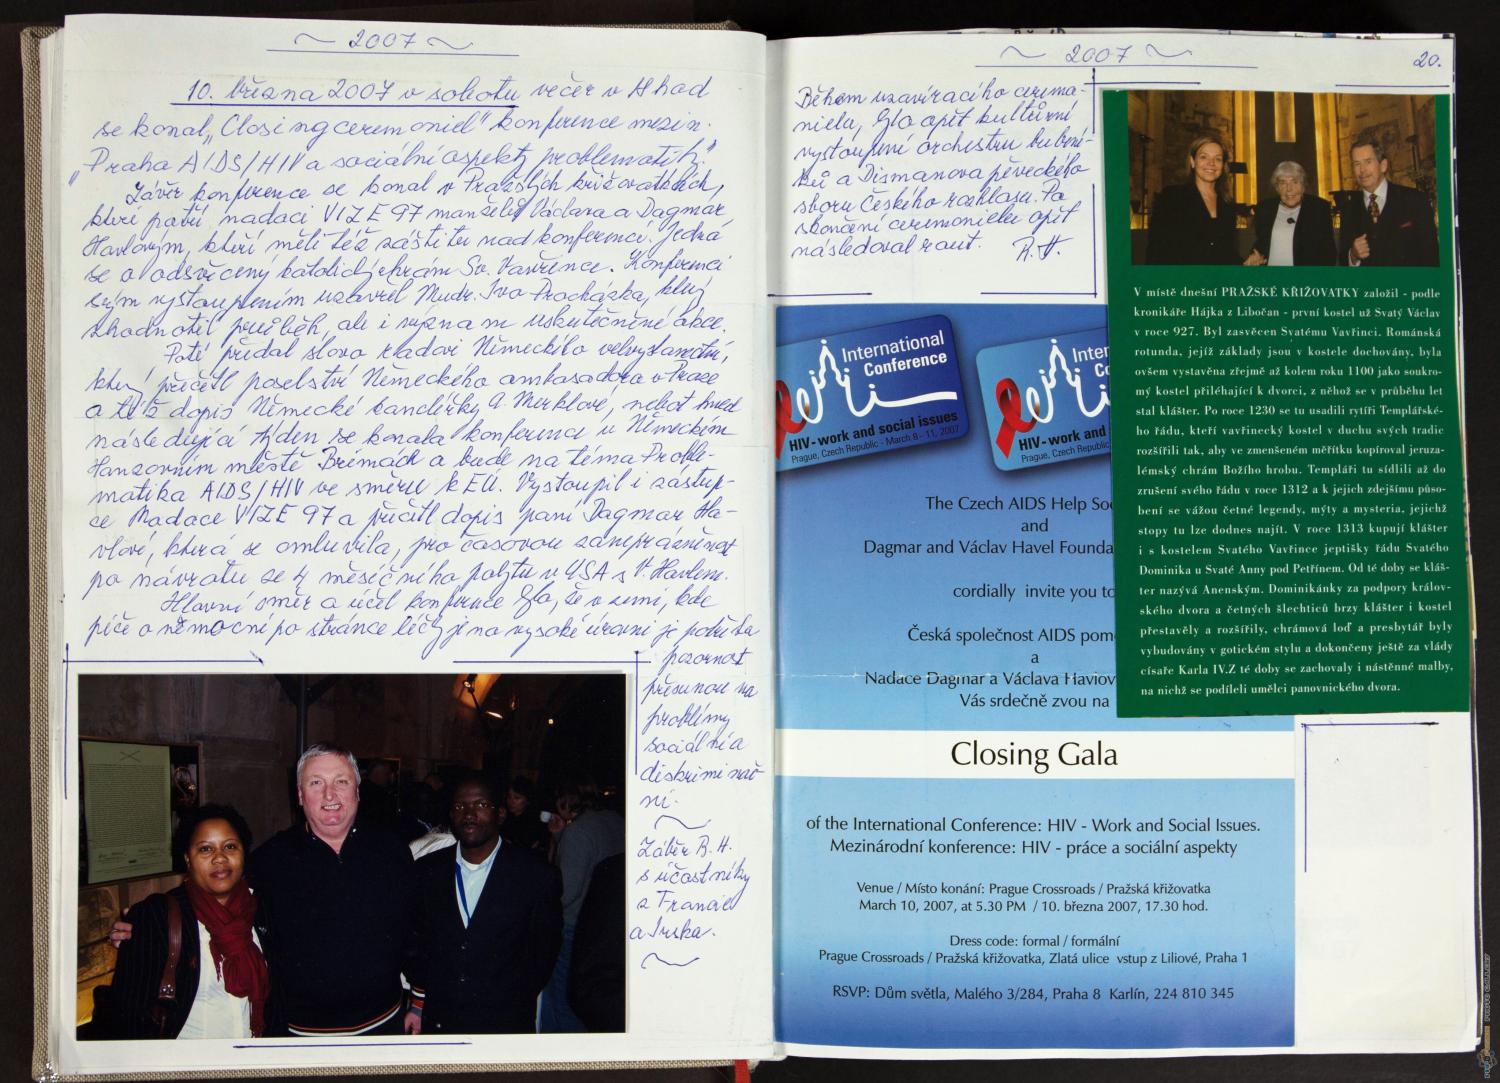 ~ 2007 ~
10. března 2007 v sobotu večer v 18 hod
se konal „Closing ceremoniel" konference mezin.
„Praha AIDS/HIV a sociální aspekty problematiky."
Závěr konference se konal v Pražských křižovatkách,
které patří nadaci VIZE 97 manželů Václava a Dagmar
Havlovým, kteří měli též záštitu nad konferencí. Jedná
se o odsvěcený katolický chrám Sv. Vavřince. Konferenci
svým vystoupením uzavřel Mudr. Ivo Procházka, který
zhodnotil průběh, ale i význam uskutečněné akce.
Poté předal slovo radovi Německého velvyslanectví,
který přečetl poselství Německého ambasadora v Praze
a též dopis Německé kancléřky A. Merklové, neboť hned
následující týden se konala konference v Německém
Hanzovním městě Brémách a bude na téma Proble-
matika AIDS/HIV ve směru k EU. Vystoupil i zástup-
ce Nadace VIZE 97 a přečetl dopis paní Dagmar Ha-
vlové, která se omluvila, pro časovou zaneprázdněnost
po návratu ze 4 měsíčního pobytu v USA s V. Havlem.
Hlavní směr a účel konference bylo, že v zemi, kde
péče o nemocné po stránce léčby je na vysoké úrovni je potřeba
pozornost
přesunou na
problémy
sociální a
diskriminač-
ní.
~
Záběr R. H.
s účastníky
z Francie
a Irska.
~
~ 2007 ~
20.
Během uzavíracího ceremo-
nielu, bylo opět kulturní
vystoupení orchestru bubení-
ků a Dismanova pěveckého
sboru Českého rozhlasu. Po
skončení ceremonielu opět
následoval raut. R. H.
International
Conference
HIV - work and social issues
Prague, Czech Republic - March 8 - 11, 2007
Internati
Co
HIV - work and
Prague, Czech Republic
The Czech AIDS Help So
and
Dagmar and Václav Havel Founda
cordially invite you to
Česká společnost AIDS pomo
a
Nadace Dagmar a Václava Havlov
Vás srdečně zvou na
Closing Gala
of the International Conference: HIV - Work and Social Issues.
Mezinárodní konference: HIV - práce a sociální aspekty
Venue / Místo konání: Prague Crossroads / Pražská křižovatka
March 10, 2007, at 5.30 PM / 10. března 2007, 17.30 hod.
Dress code: formal / formální
Prague Crossroads / Pražská křižovatka, Zlatá ulice vstup z Liliové, Praha 1
RSVP: Dům světla, Malého 3/284, Praha 8 Karlín, 224 810 345
V místě dnešní PRAŽSKÉ KŘIŽOVATKY založil - podle
kronikáře Hájka z Libočan - první kostel už Svatý Václav
v roce 927. Byl zasvěcen Svatému Vavřinci. Románská
rotunda, jejíž základy jsou v kostele dochovány, byla
ovšem vystavěna zřejmě až kolem roku 1100 jako soukro-
mý kostel přiléhající k dvorci, z něhož se v průběhu let
stal klášter. Po roce 1230 se tu usadili rytíři Templářské-
ho řádu, kteří vavřinecký kostel v duchu svých tradic
rozšířili tak, aby ve zmenšeném měřítku kopíroval jeruza-
lémský chrám Božího hrobu. Templáři tu sídlili až do
zrušení svého řádu v roce 1312 a k jejich zdejšímu půso-
bení se vážou četné legendy, mýty a mysteria, jejichž
stopy tu lze dodnes najít. V roce 1313 kupují klášter
i s kostelem Svatého Vavřince jeptišky řádu Svatého
Dominika u Svaté Anny pod Petřínem. Od té doby se kláš-
ter nazývá Anenským. Dominikánky za podpory králov-
ského dvora a četných šlechticů brzy klášter i kostel
přestavěly a rozšířily, chrámová loď a presbytář byly
vybudovány v gotickém stylu a dokončeny ještě za vlády
císaře Karla IV.Z té doby se zachovaly i nástěnné malby,
na nichž se podíleli umělci panovnického dvora.